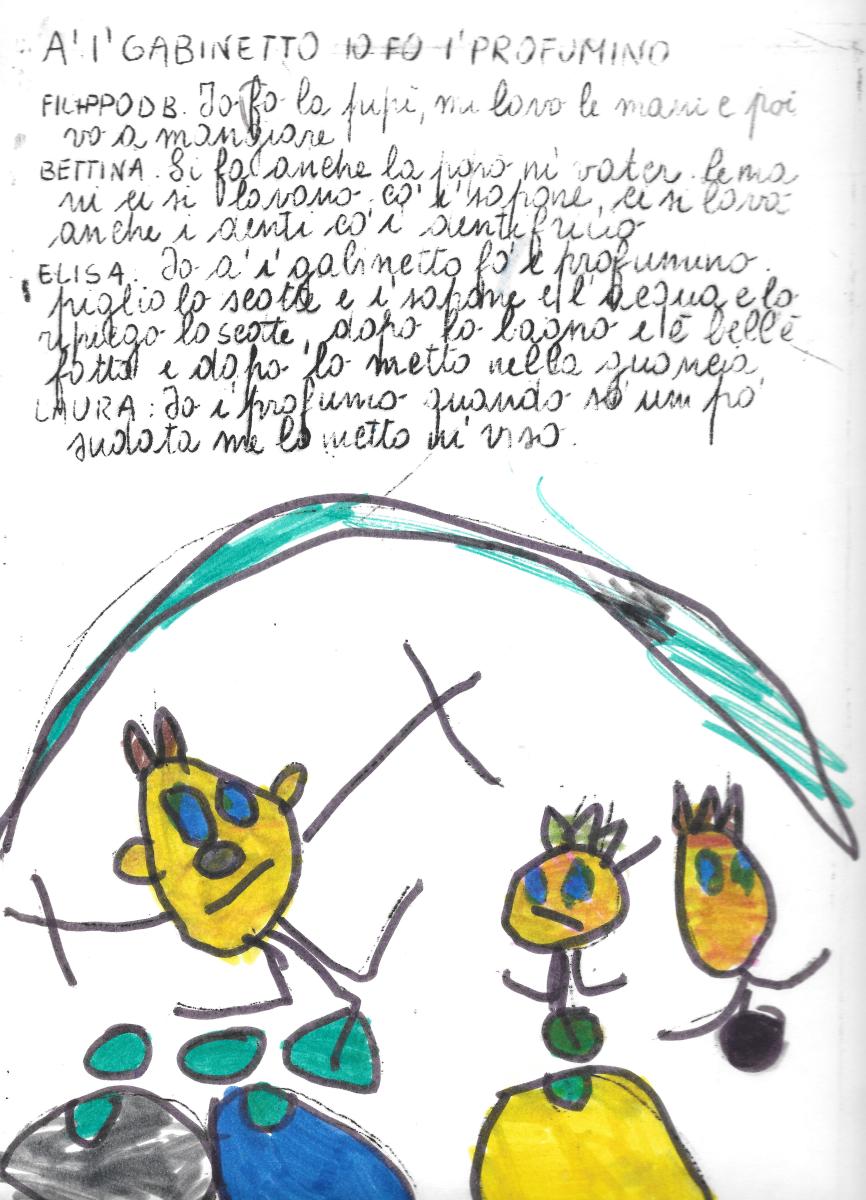 A' I' GABINETTO IO FO I' PROFUMINO
FILIPPO D B. Io fo la pipì, mi lavo le mani e poi
vo a mangiare
BETTINA. Si fa anche la popò ni' vater. Le ma
ni ci si lavano co' i' sapone, ci si lava
anche i denti co' i dentifricio
ELISA. Io a' i' gabinetto fo' i' profumino.
piglio lo scotte e i' sapone e l'acqua e lo
ripiego lo scotte, dopo lo bagno e è bell'è
fatto e dopo lo metto nella guancia
LAURA: Io i' profumo quando so' um po'
sudata me lo metto ni' viso.